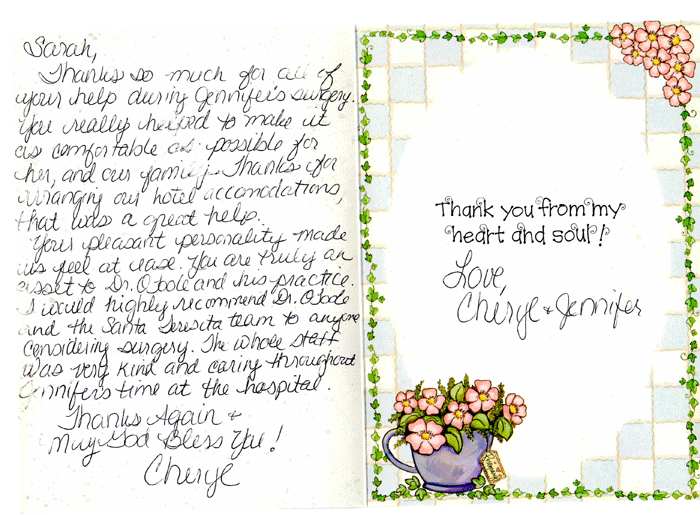 Sarah,
Thanks so much for all of
your help during Jennifer's surgery.
You really helped to make it
as comfortable as possible for
her, and our family. Thanks for
arranging our hotel accomodations,
that was a great help.
Your pleasant personality made
us feel at ease. You are truly an
asset to Dr. O'toole and his practice.
I would highly recommend Dr. O'toole
and the Santa Teresita team to anyone
considering surgery. The whole staff
was very kind and caring throughout
Jennifer's time at the hospital.
Thanks Again +
May God Bless You!
Cheryl
Thank you from my
heart and soul!
Love,
Cheryl + Jennifer